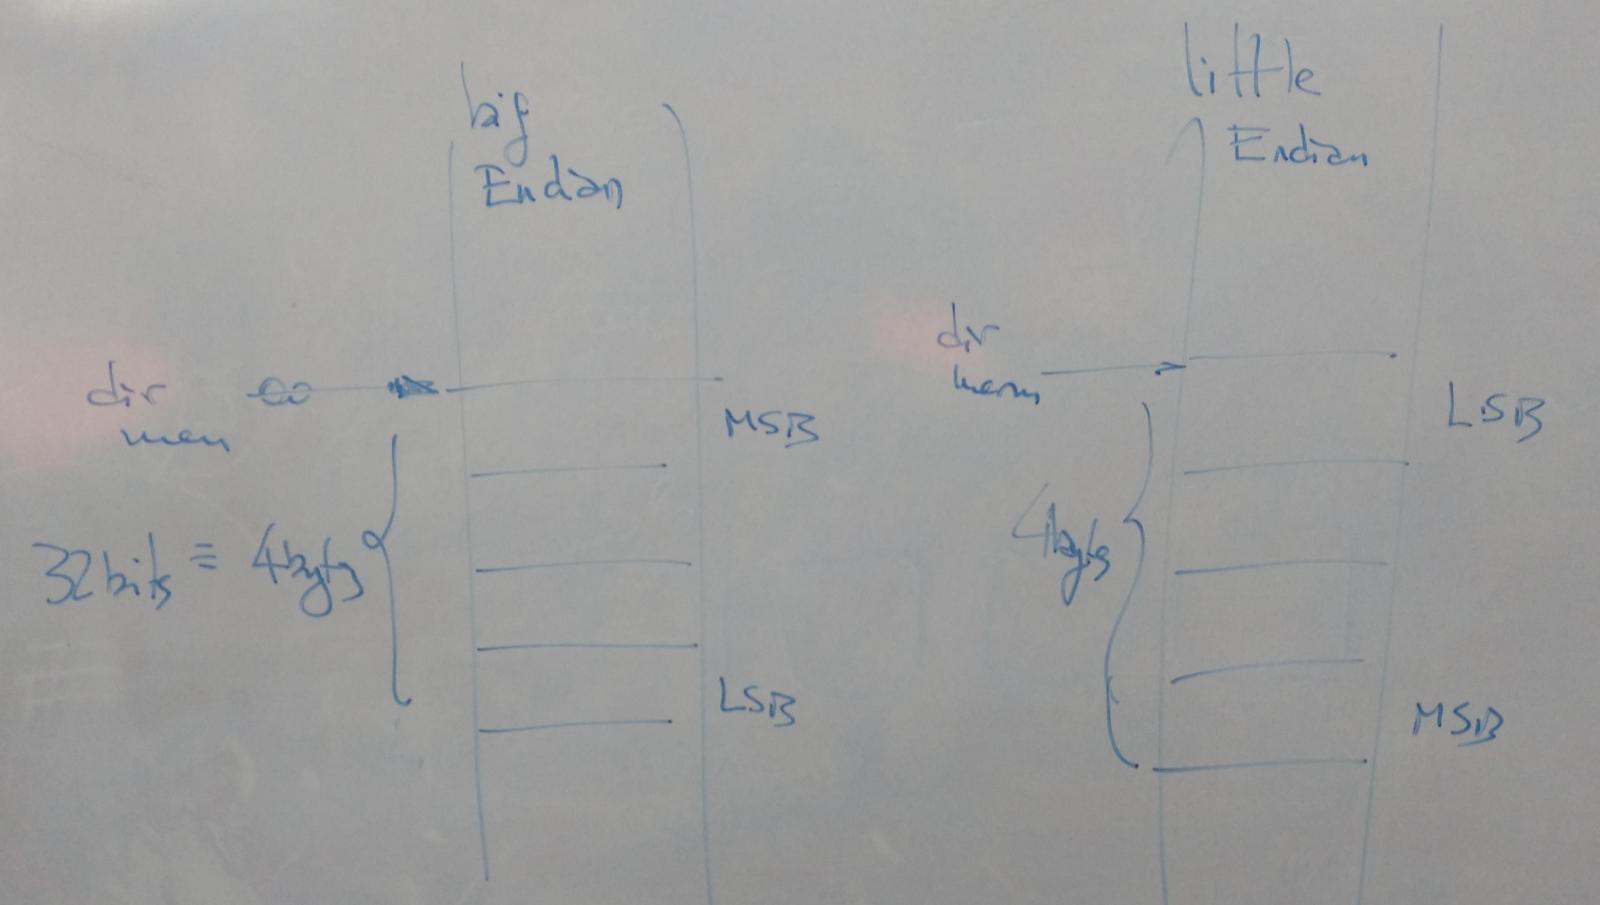 big
Endian
dir
mem
MSB
32bits ≡ 4bytes
LSB
little
Endian
dir
mem
LSB
4bytes
MSB